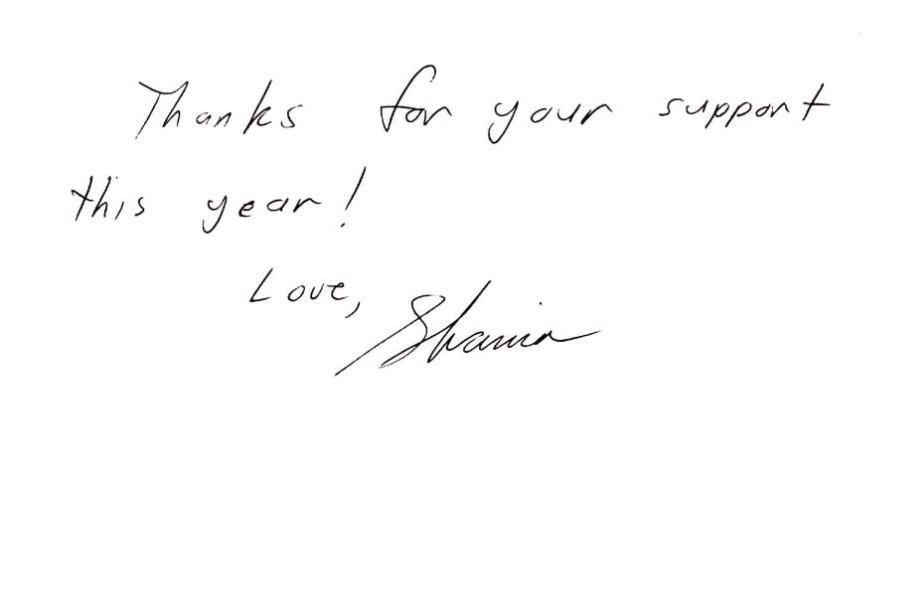 Thanks for your support
this year!
Love,
Shania